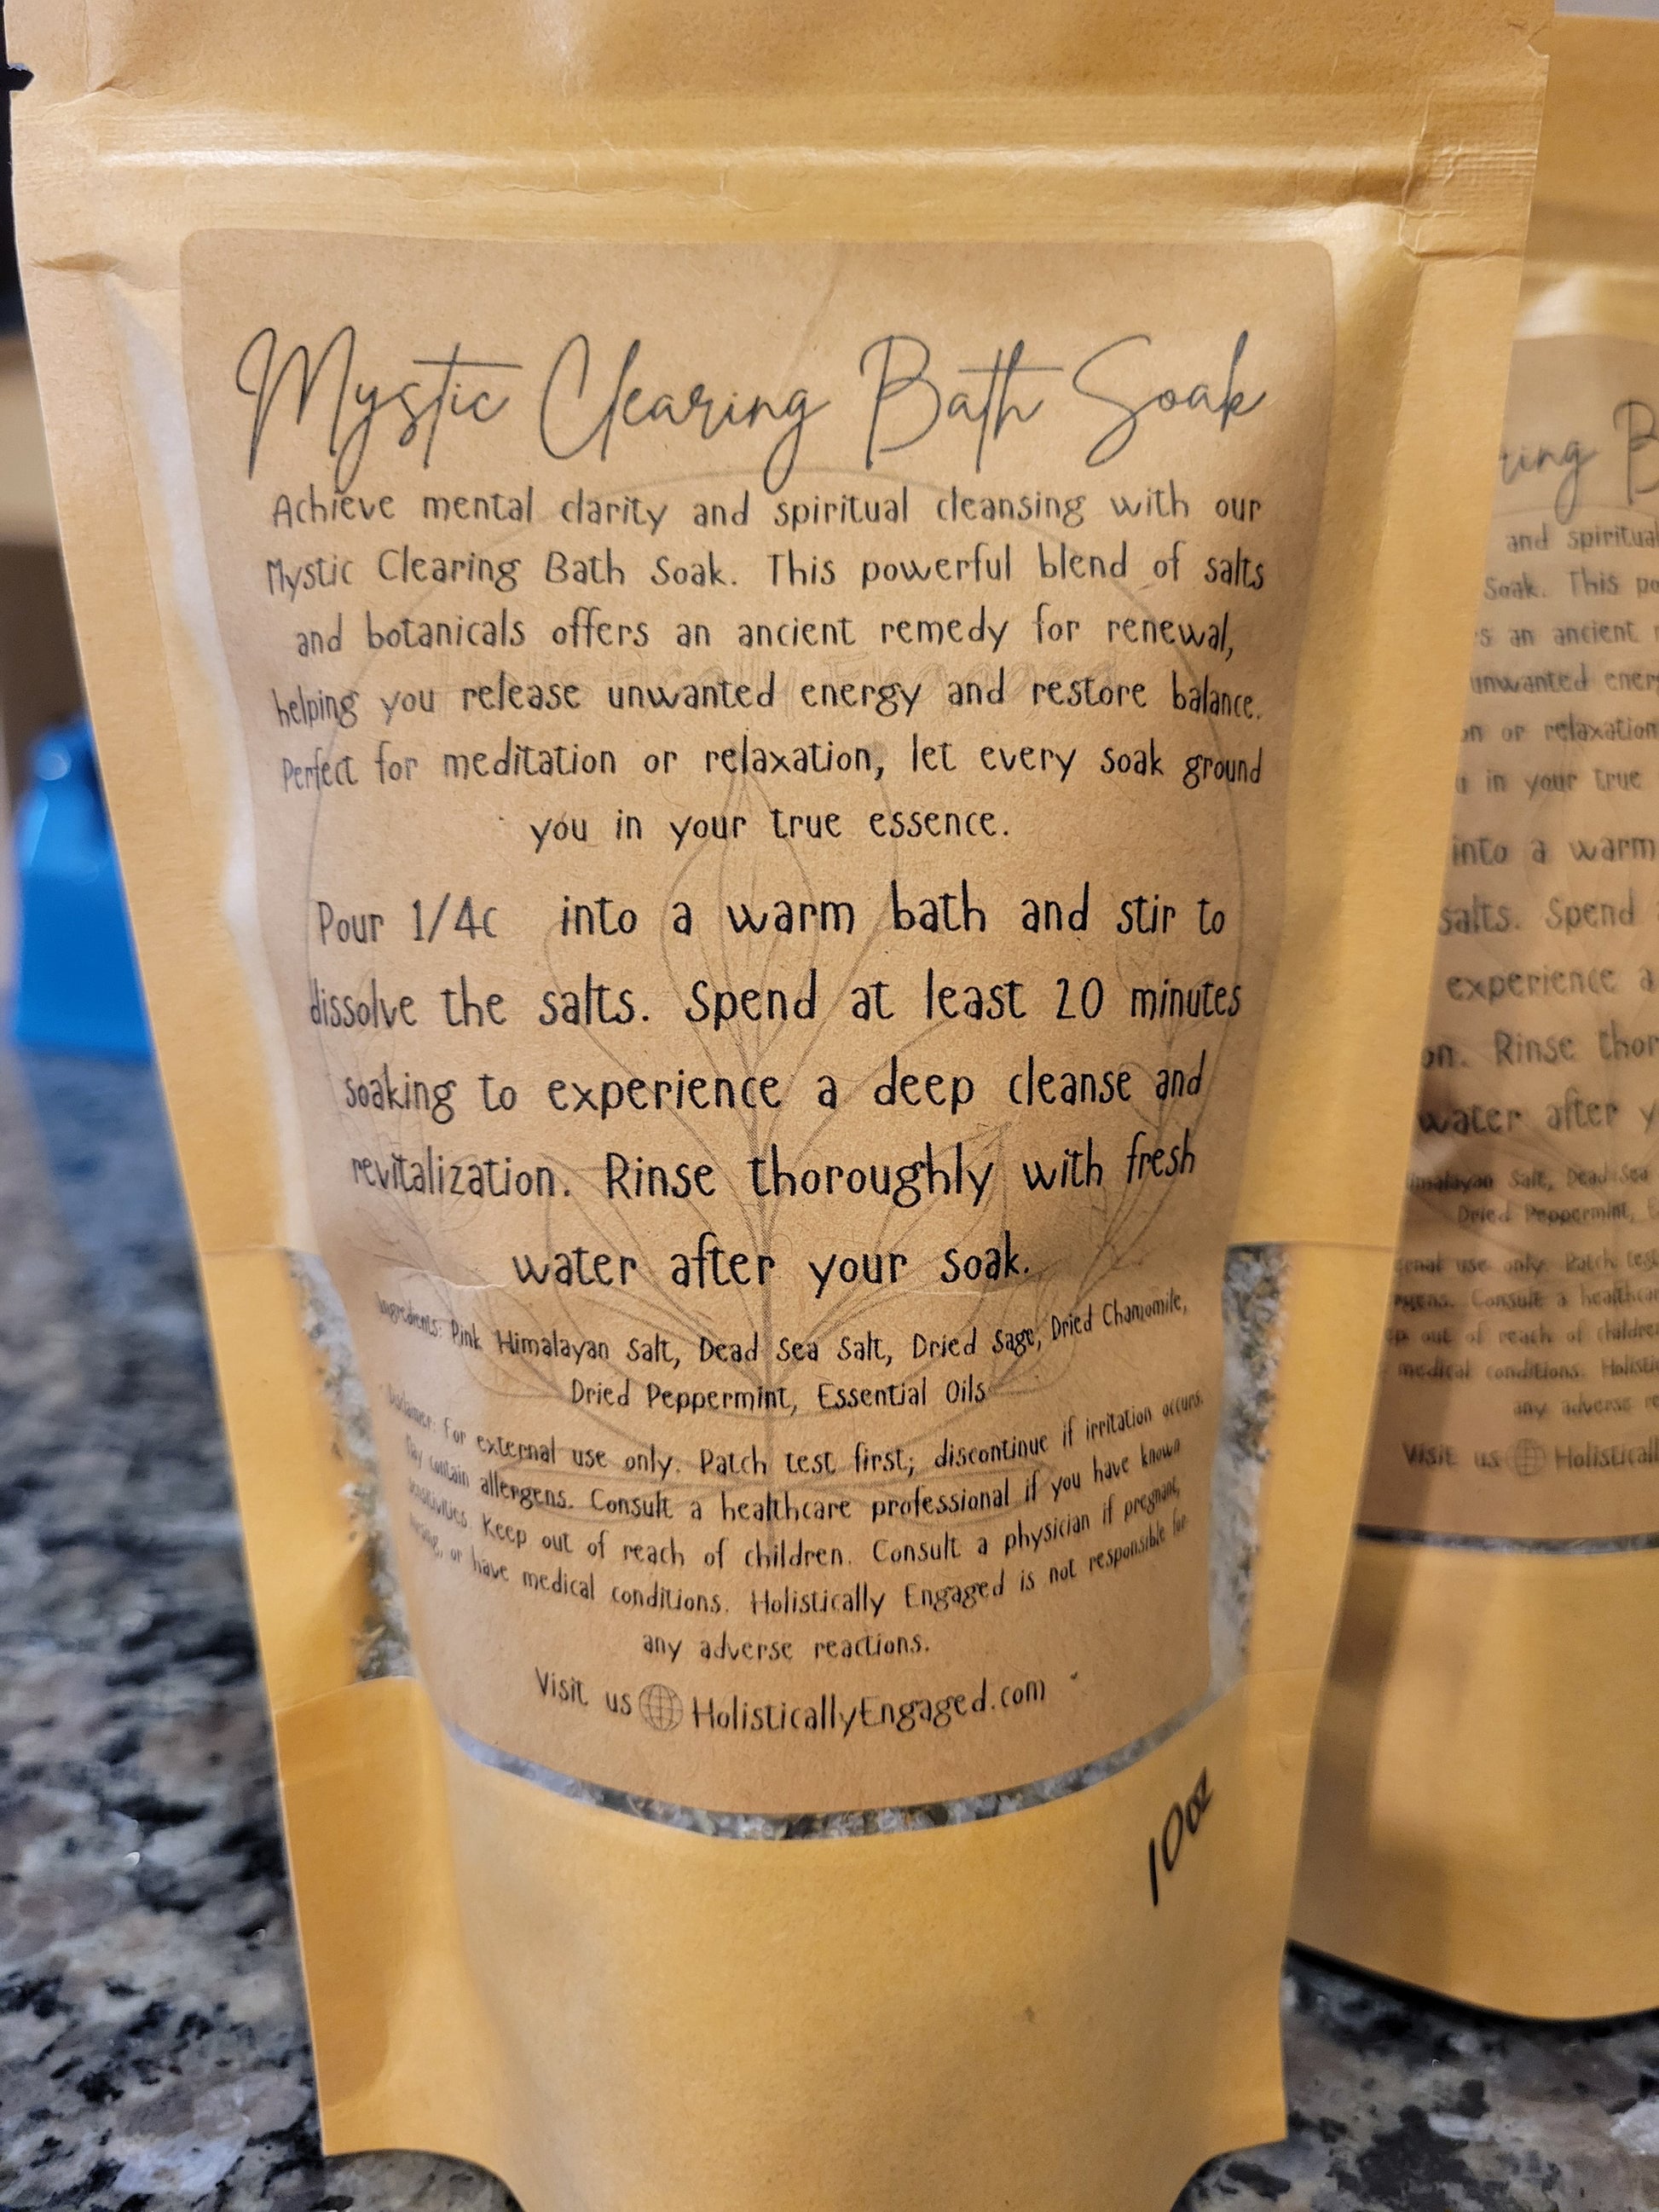 Mystic Clearing Bath Soak
Achieve mental clarity and spiritual cleansing with our
Mystic Clearing Bath Soak. This powerful blend of salts
and botanicals offers an ancient remedy for renewal,
helping you release unwanted energy and restore balance.
Perfect for meditation or relaxation, let every soak ground
you in your true essence.
Pour 1/4c into a warm bath and stir to
dissolve the salts. Spend at least 20 minutes
soaking to experience a deep cleanse and
revitalization. Rinse thoroughly with fresh
water after your soak.
Ingredients: Pink Himalayan Salt, Dead Sea Salt, Dried Sage, Dried Chamomile,
Dried Peppermint, Essential Oils
Disclaimer: For external use only. Patch test first; discontinue if irritation occurs.
May contain allergens. Consult a healthcare professional if you have known
sensitivities. Keep out of reach of children. Consult a physician if pregnant,
nursing, or have medical conditions. Holistically Engaged is not responsible for
any adverse reactions.
Visit us HolisticallyEngaged.com
10oz
ring B
and spiritual
Soak. This po
s an ancient
unwanted energ
on or relaxation
u in your true
into a warm
salts. Spend
experience a
on. Rinse thor
water after y
Himalayan Salt, Dead Sea
Dried Peppermint,
ernal use only. Patch test
rgens. Consult a healthcar
ep out of reach of children
medical conditions. Holistic
any adverse re
Visit us Holisticall